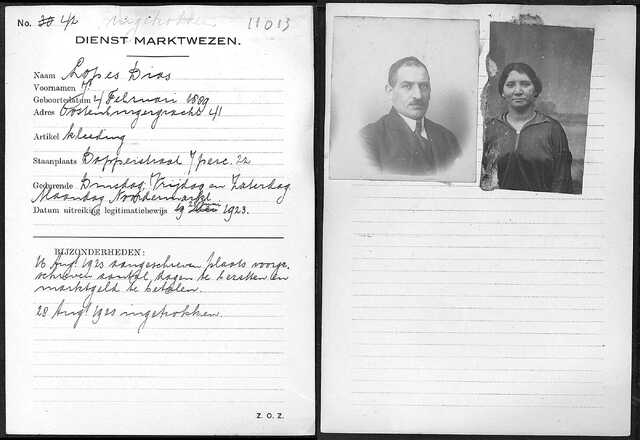 No. 42 ingetrokken 11013
DIENST MARKTWEZEN.
Naam Lopes Dias
Voornamen J.
Geboortedatum 4 Februari 1889
Adres Oostenburgergracht 41
Artikel kleeding
Staanplaats 7 perc. 22
Gedurende Dinsdag, Vrijdag en Zaterdag
Maandag Noordermarkt
Datum uitreiking legitimatiebewijs 1923.
BIJZONDERHEDEN:
16 Augt 1923 aangeschreven plaats voorge-
schreven aantal dagen te bezetten en
marktgeld te betalen.
28 Augt 1923 ingetrokken.
Z. O. Z.